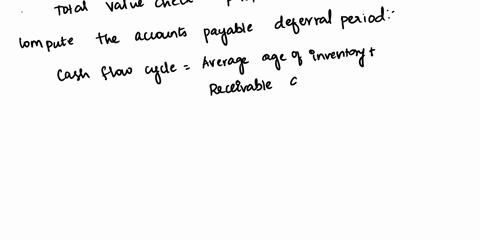 Total value check
Compute the accounts payable deferral period:-
Cash flow cycle = Average age of inventory +
Receivable c